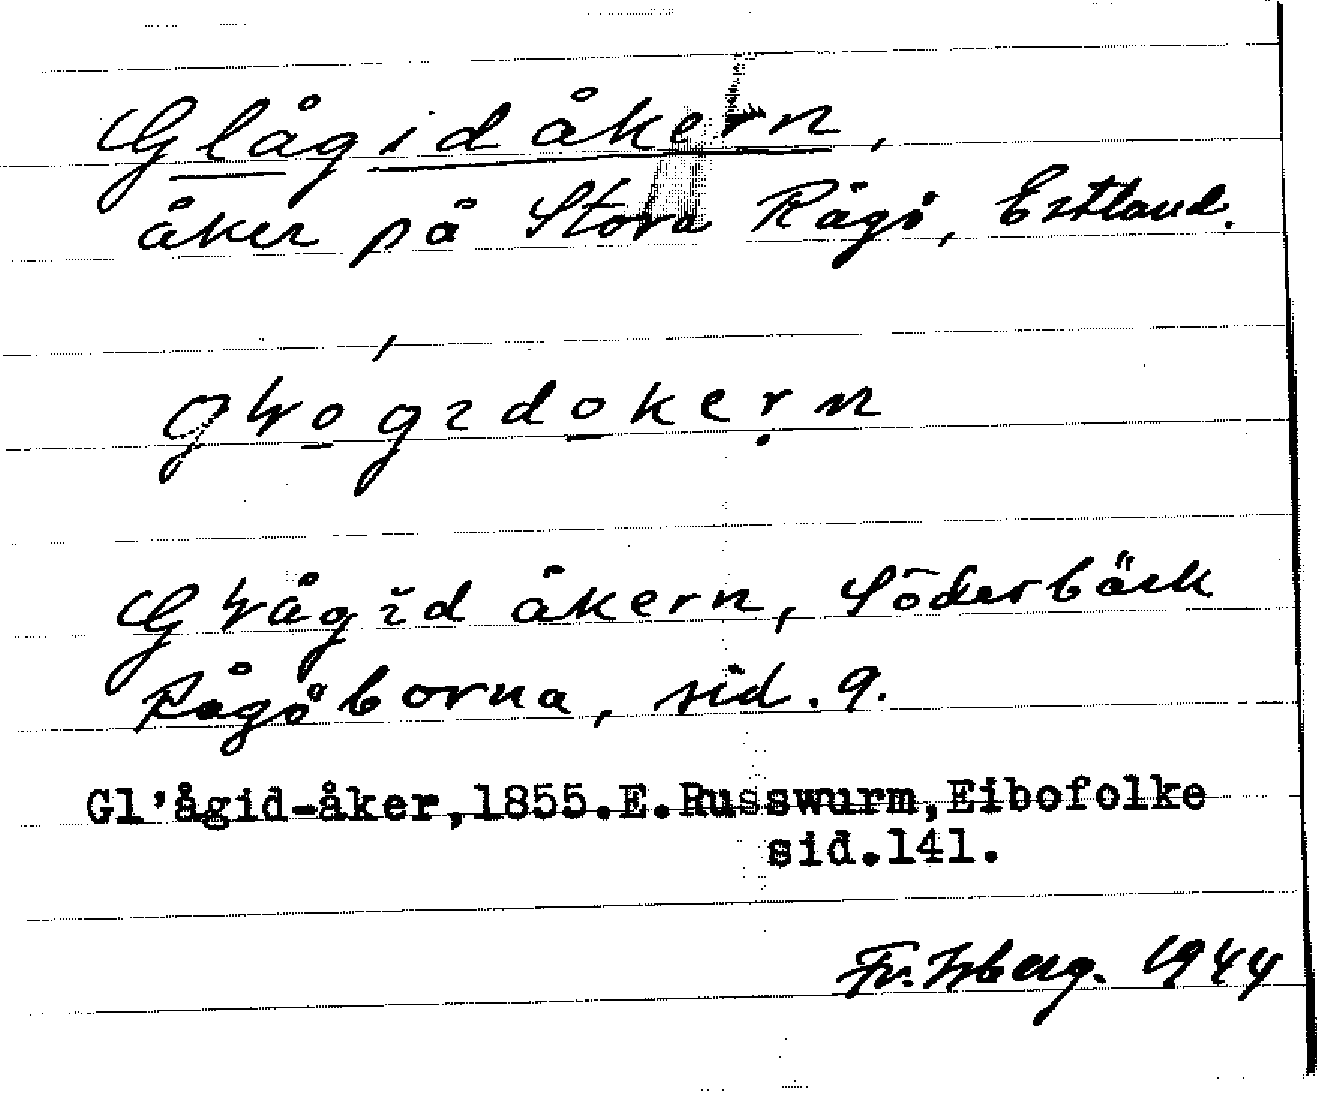 Glågidåkern,
åker på Stora Rågö, Estland.
Głågid åkern, Söderbäck
Rågöborna, sid. 9.
Gl'ågid-åker,1855.E.Russwurm,Eibofolke
sid.141.
Fr. Isberg. 1944